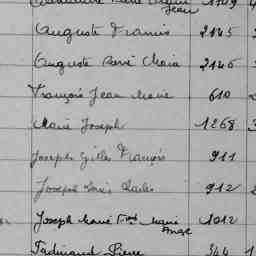 Jean 1749
Auguste Francis 2145
Auguste René Marie 2146
François Jean Marie 610
Marie Joseph 1268
Joseph Gilles François 911
Joseph Louis Charles 912
Joseph Marie Fois Marie 1012
Ange
Ferdinand Pierre 344